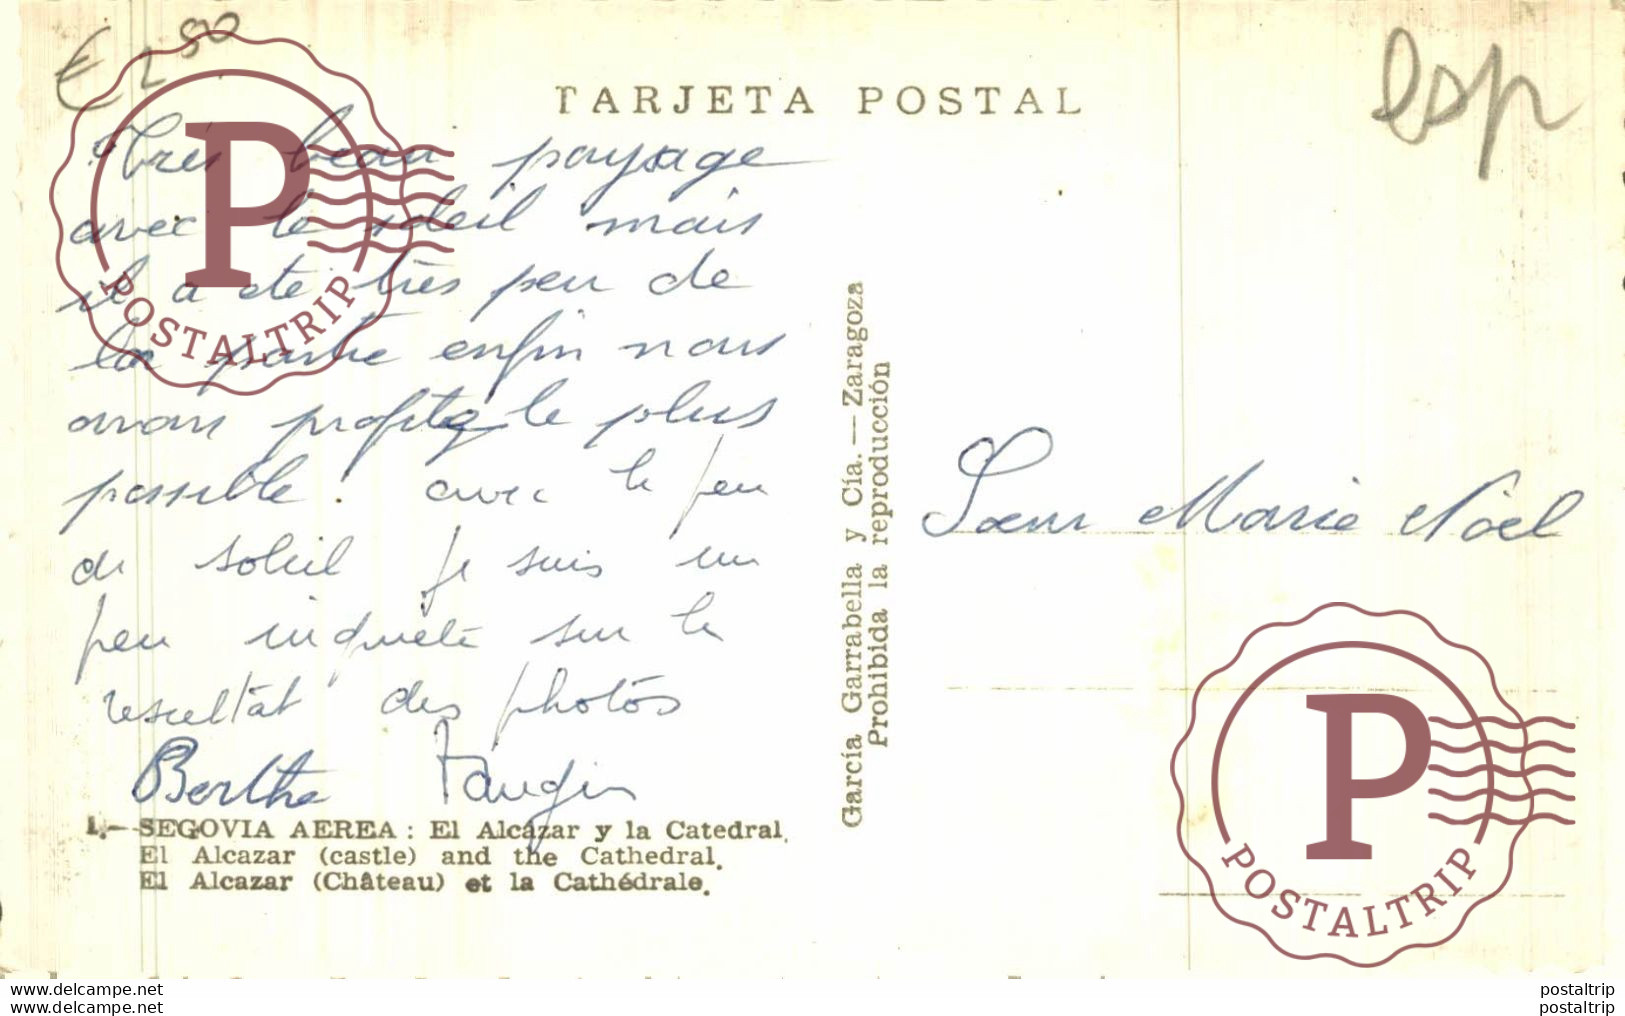 € 2 50
TARJETA POSTAL
esp
Très beau paysage
avec le soleil mais
il a été très peu de
la partie enfin nous
avons profité le plus
possible! avec le peu
de soleil je suis un
peu inquiète sur le
resultât des photôs
Berthe
1.—SEGOVIA AEREA: El Alcázar y la Catedral.
El Alcazar (castle) and the Cathedral.
El Alcazar (Château) et la Cathédrale.
García Garrabella y Cía.—Zaragoza
Prohibida la reproducción
Sœur Marie Noël
P
POSTALTRIP
P
POSTALTRIP
www.delcampe.net
www.delcampe.net
postaltrip
postaltrip